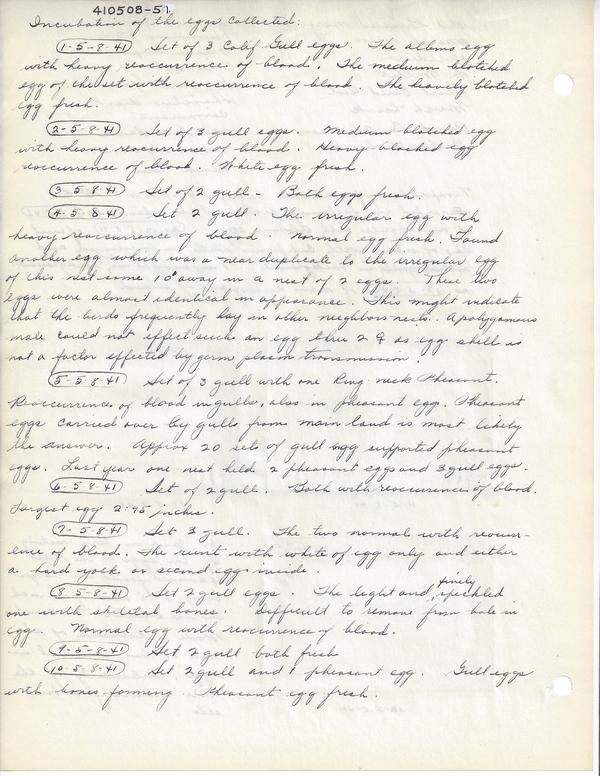 410508-51
Incubation of the eggs collected:
1-5-8-41 Set of 3 Calif Gull eggs. The albino egg
with heavy reoccurrence of blood. The medium blotched
egg of the set with reoccurrence of blood. The heavely blotched
egg fresh.
2-5-8-41 Set of 3 gull eggs. Medium blotched egg
with heavy reoccurrence of blood. Heavy bloched egg
reoccurrence of blood. White egg fresh.
3-5-8-41 Set of 2 gull - Both eggs fresh.
4-5-8-41 Set 2 gull. The irregular egg with
heavy reoccurrence of blood. normal egg fresh. Found
another egg which was a near duplicate to the irregular egg
of this nest some 10' away in a nest of 2 eggs. These two
eggs were almost identical in apperance. This might indicate
that the birds frequently lay in other neighbors nests. A polygamous
male could not effect such an egg thru 2 ♀ as egg shell is
not a factor effected by germ plasm transmission.
5-5-8-41 Set of 3 gull with one Ring neck Pheasant.
Reoccurrence of blood in gulls, also in pheasant egg. Pheasant
eggs carried over by gulls from main land is most likely
the answer. Approx 20 sets of gull egg supported pheasant
eggs. Last year one nest held 2 pheasant eggs and 3 gull eggs.
6-5-8-41 Set of 2 gull. Both with reoccurence of blood.
Largest egg 2.95 inches.
7-5-8-41 Set 3 gull. The two normal with reocurr-
ence of blood. The runt with white of egg only and either
a hard yolk or second egg inside.
8-5-8-41 Set 2 gull eggs. The light and finely speckled
one with skeletal bones. Difficult to remove from hole in
egg. Normal egg with reoccurrence of blood.
9-5-8-41 Set 2 gull both fresh
10-5-8-41 Set 2 gull and 1 pheasant egg. Gull eggs
with bones forming Pheasant egg fresh.